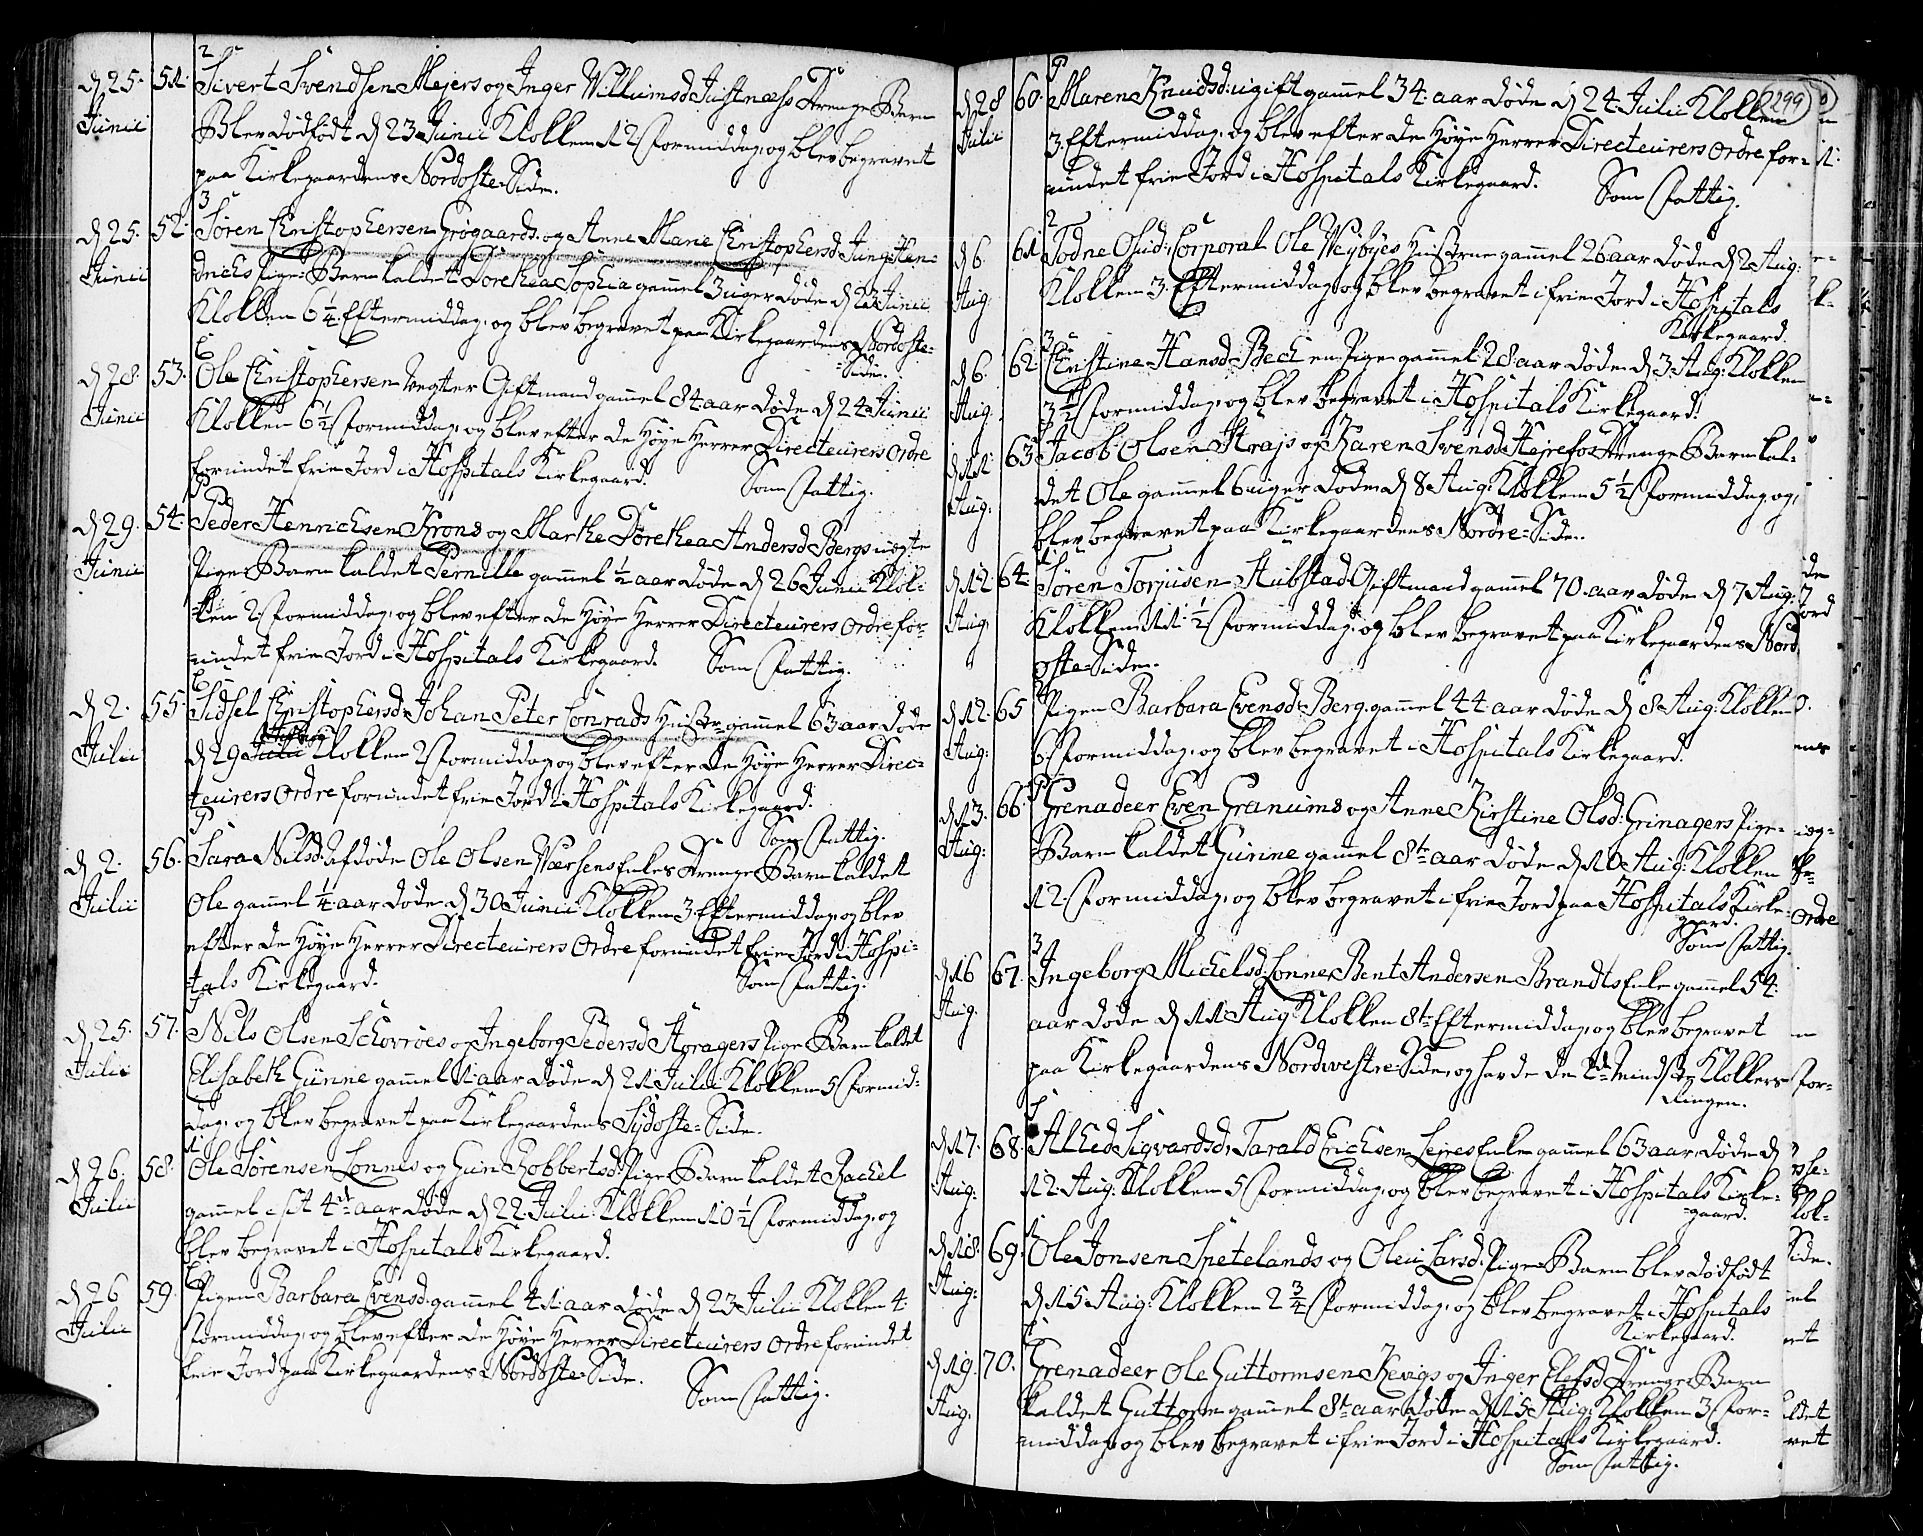 2
d 25. Junii 51. Sivert Svendsen Mejers og Inger Willumsd Justnæss Drenge Barn
Blev dødfødt d 23 Junii Klokken 12 Formiddag, og blev begravet
paa Kirkegaardens Nordoste Side.
3
d 25. Junii 52. Søren Christophersen Grøgaards og Anne Marie Christophersd Jung Hen-
drichs Pige Barn kaldet Dorethea Sophia gamel 3 uger døde d 23 Junii
Klokken 6 1/4 Eftermiddag, og blev begravet paa Kirkegaardens Nordoste-
Side.
d 28. Junii 53. Ole Christophersen Vegter Giftmand gamel 84 aar døde d 24 Junii
Klokken 6 1/2 Formiddag, og blev efter de Høye Herrer Directeurers Ordre
forundet frie Jord i Hospitals Kirkegaard. Som Fattig.
d 29. Junii 54. Peder Henrichsen Krons og Marthe Dorethea Andersd Bergs uægte
Pige Barn kaldet Pernille gamel 1/2 aar døde d 26 Junii Klok-
ken 2 Formiddag, og blev efter de Høye Herrer Directeurers Ordre for-
undet frie Jord i Hospitals Kirkegaard. Som Fattig.
d 2. Julii 55. Sidsel Christophersd Johan Peter Conrads Hustru gamel 63 aar døde
d 29 Klokken 2 Formiddag og blev efter de Høye Herrer Direc-
teurers Ordre forundet frie Jord i Hospitals Kirkegaard.
Som Fattig.
d 2. Julii 56. Sara Nilsd Afdøde Ole Olsen Enkes Drenge Barn kaldet
Ole gamel 1/4 aar døde d 30 Junii Klokken 3 Eftermiddag, og blev
efter de Høye Herrer Directeurers Ordre forundet frie Jord i Hospi-
tals Kirkegaard. Som Fattig.
d 25. Julii 57. Nils Olsen Schorrøes og Ingeborg Pedersd Storagers Pige Barn kaldet
Elisabeth Gunne gamel 1 aar døde d 21 Julii Klokken 5 Formid-
dag, og blev begravet paa Kirkegaardens Sydoste Side.
d 26. Julii 58. Ole Sørensen Lonnes og Gun Robbertsd Pige Barn kaldet Rachel
gamel i sit 4de aar døde d 22 Julii Klokken 10 1/2 Formiddag, og
blev begravet i Hospitals Kirkegaard.
d 26 Julii 59. Pigen Barbara Evensd gamel 41 aar døde d 23 Julii Klokken 4
Formiddag, og blev efter de Høye Herrer Directeurers Ordre forundet
frie Jord paa Kirkegaardens Nordoste Side.
Som Fattig.
299
d 28 Julii 60. Maren Knudsd ugift gamel 34 aar døde d 24 Julii Klokken
3 Eftermiddag, og blev efter de Høye Herrer Directeurers Ordre for-
undet frie Jord i Hospitals Kirkegaard. Som Fattig.
2
d 6. Aug. 61. Todne Corporal Ole Hustrue gamel 26 aar døde d 2 Aug:
Klokken 3 Eftermiddag, og blev begravet i frie Jord i Hospitals
Kirkegaard.
3
d 6. Aug. 62. Christine Hansd Bech en Pige gamel 28 aar døde d 3 Aug: Klokken
3 1/2 Formiddag, og blev begravet i Hospitals Kirkegaard.
d 11. Aug. 63. Jacob Olsen Strajs og Karen Svensd Hejrefos Drenge Barn kal-
det Ole gamel 6 uger døde d 8 Aug: Klokken 5 1/2 Formiddag, og
blev begravet paa Kirkegaardens Nordre Side.
d 12. Aug. 64. Søren Torjusen Stubstad Giftmand gamel 70 aar døde d 7 Aug:
Klokken 11 1/2 Formiddag, og blev begravet paa Kirkegaardens Nord
oste Side.
d 12. Aug: 65 Pigen Barbara Evensd Berg gamel 44 aar døde d 8 Aug: Klokken
6 Formiddag, og blev begravet i Hospitals Kirkegaard.
d 13. Aug: 66. Grenadeer Even Granums og Anne Kirstine Olsd: Grinagers Pige-
Barn kaldet Gunne gamel 8te aar døde d 10 Aug: Klokken
12 Formiddag, og blev begravet i frie Jord paa Hospitals Kirke-
gaard.
Som Fattig.
3
d 16 Aug. 67. Ingeborg Michelsd: Lonne Bent Andersen Brandts Enke gamel 54
aar døde d 11 Aug: Klokken 8te Eftermiddag, og blev begravet
paa Kirkegaardens Nordwestre Side, og havde den mindste Klokkers
Ringen.
d 17. Aug: 68. Alhed Sigvardsd: Tarald Erichsen Lejres Enke gamel 63 aar, døde d
12 Aug: Klokken 5 Formiddag, og blev begravet i Hospitals Kirke-
gaard.
d 18. Aug: 69. Ole Jonsen Spetelands og Olew Larsd: Pige Barn blev dødfødt
d 15 Aug: Klokken 2 3/4 Formiddag, og blev begravet i Hospitals
Kirkegaard.
d 19. Aug. 70. Grenadeer Ole Guttormsen Kevigs og Inger Elefsd Drenge Barn
kaldet Guttorm gamel 8te aar døde d 15 Aug: Klokken 3 For-
middag, og blev begravet i frie Jord i Hospitals Kirkegaard.
Som Fattig.